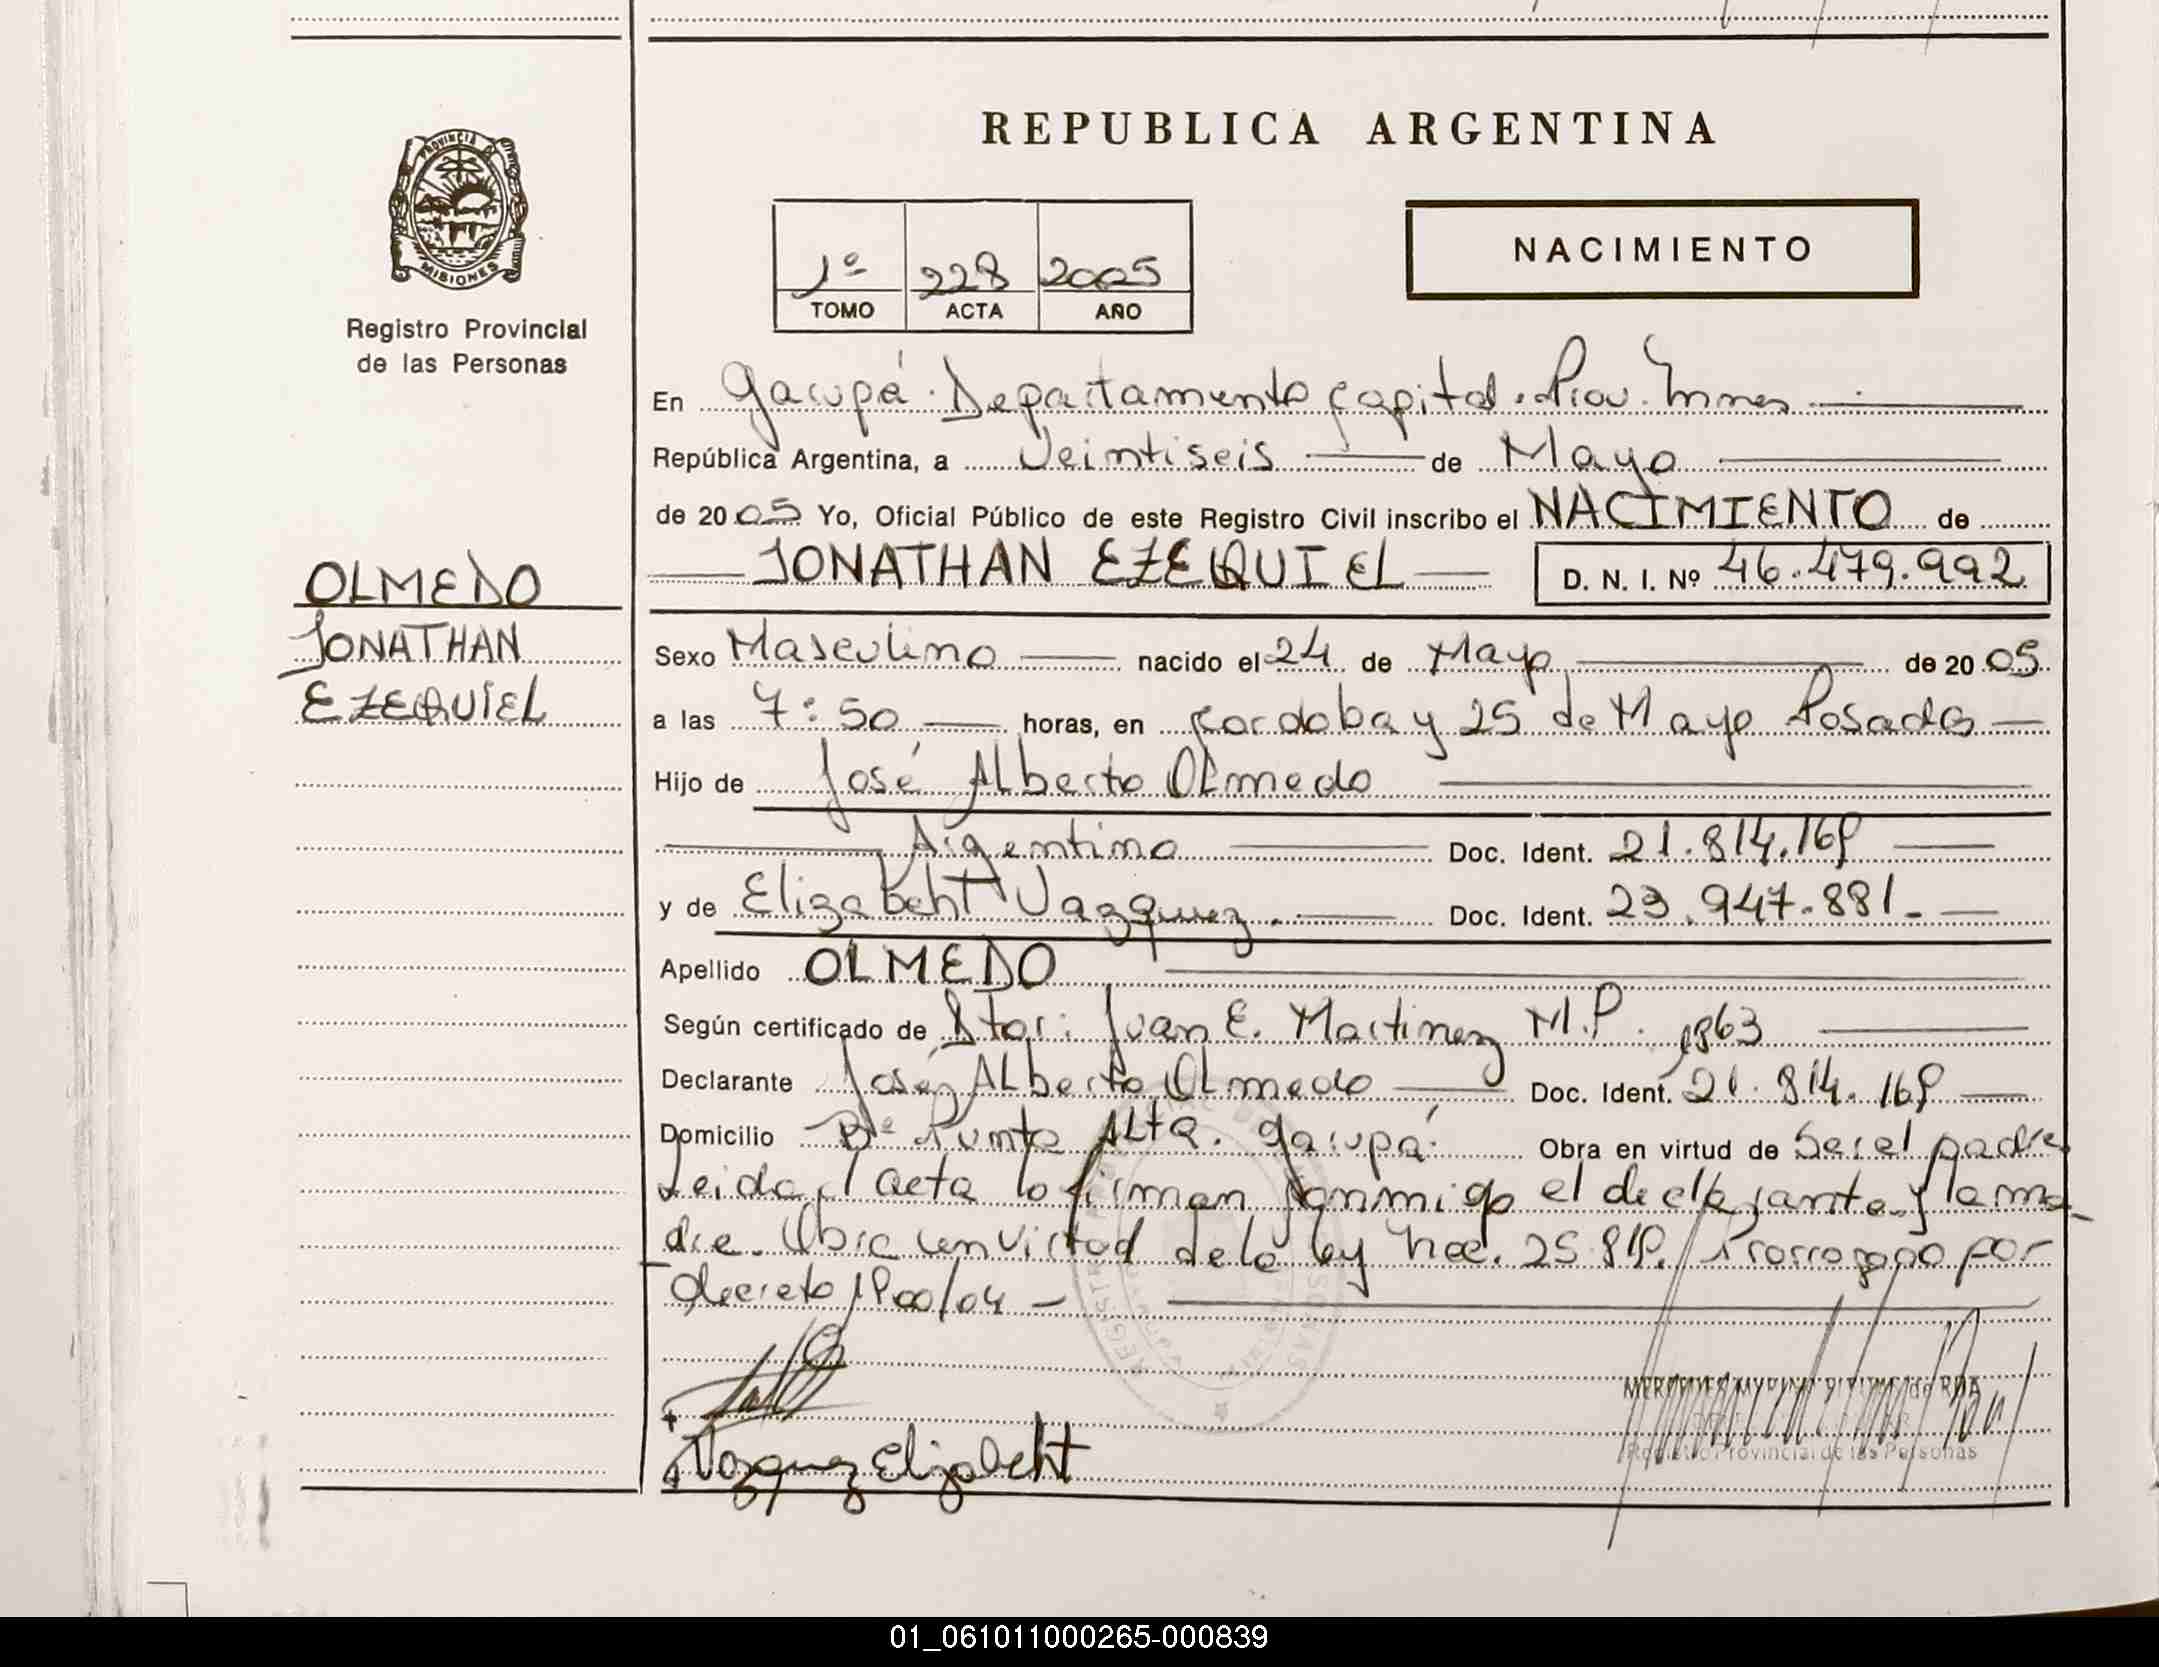 PROVINCIA DE
MISIONES
Registro Provincial
de las Personas
OLMEDO
JONATHAN
EZEQUIEL
REPUBLICA ARGENTINA
1º 228 2005
TOMO ACTA AÑO
NACIMIENTO
En Garupá. Departamento Capital. Prov. Mnes
República Argentina, a Veintiseis de Mayo
de 2005 Yo, Oficial Público de este Registro Civil inscribo el NACIMIENTO de
JONATHAN EZEQUIEL D. N. I. Nº 46.479.992
Sexo Masculino nacido el 24 de Mayo de 2005
a las 7:50 horas, en Cordoba y 25 de Mayo Posadas
Hijo de José Alberto Olmedo
Argentino Doc. Ident. 21.814.169
y de Elizabeht Vazquez. Doc. Ident. 23.947.881.
Apellido OLMEDO
Según certificado de Dtor: Juan E. Martinez M.P. 1863
Declarante José Alberto Olmedo Doc. Ident. 21.814.169
Domicilio Bº Punta Alta. Garupá. Obra en virtud de Ser el padre
Leida el acta lo firman conmigo el declarante y la ma-
dre. Obra en virtud de la ley Nac. 25.819. Prorrogado por
decreto 1900/04 -
Vazquez Elizabeht
Registro Provincial de las Personas
01_061011000265-000839